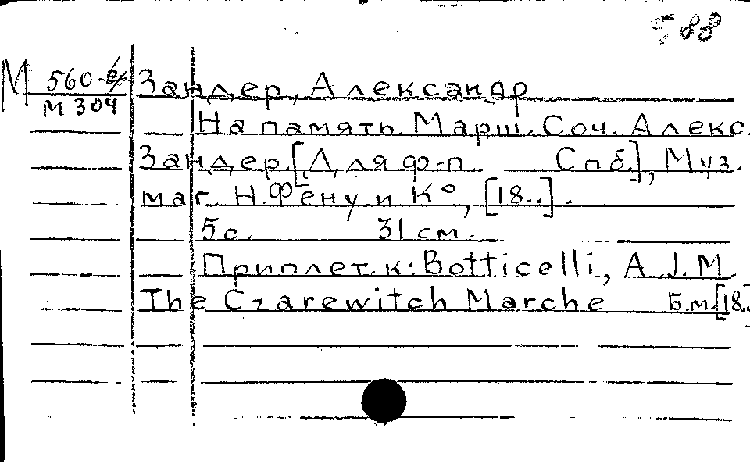 588
М 560-б/М 304
Зандер, Александр
На память. Марш. Соч. Алекс.
Зандер. [Для ф-п. Спб], Муз.
маг. Н. Фену и К°, [18..].
5с. 31 см.
Приплет. к: Botticelli, A J.M.
The Czarewitch Marche Б.м. [18.